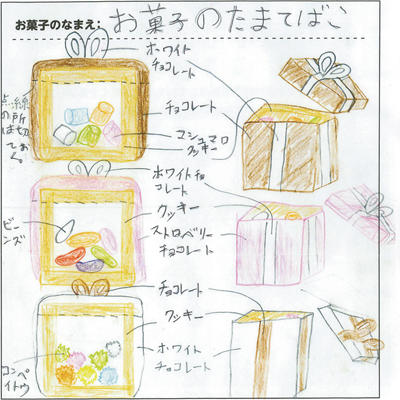 お菓子のなまえ: お菓子のたまてばこ
ホワイト
チョコレート
チョコレート
マシュマロ
クッキー
点線の所は切っておく。
ホワイトチョ
コレート
クッキー
ストロベリー
チョコレート
ビーンズ
チョコレート
クッキー
ホワイト
チョコレート
コンペイトウ